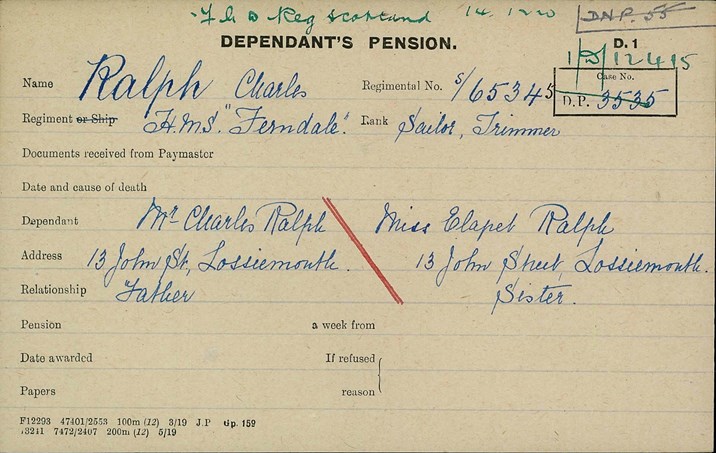 Reg Scotland 14.12.20 D.N.P. 55
DEPENDANT'S PENSION. D.1
1/D/12415
Name Ralph Charles Regimental No. S/65345 Case No.
D.P. 3535
Regiment or Ship H.M.S. "Ferndale". Rank Sailor, Trimmer
Documents received from Paymaster
Date and cause of death
Dependant Mr Charles Ralph Miss Elapet Ralph
Address 13 John St, Lossiemouth. 13 John Street, Lossiemouth.
Relationship Father Sister.
Pension a week from
Date awarded If refused
Papers reason
F12293 47401/2553 100m (12) 3/19 J.P Gp. 159
13211 7472/2407 200m (12) 5/19